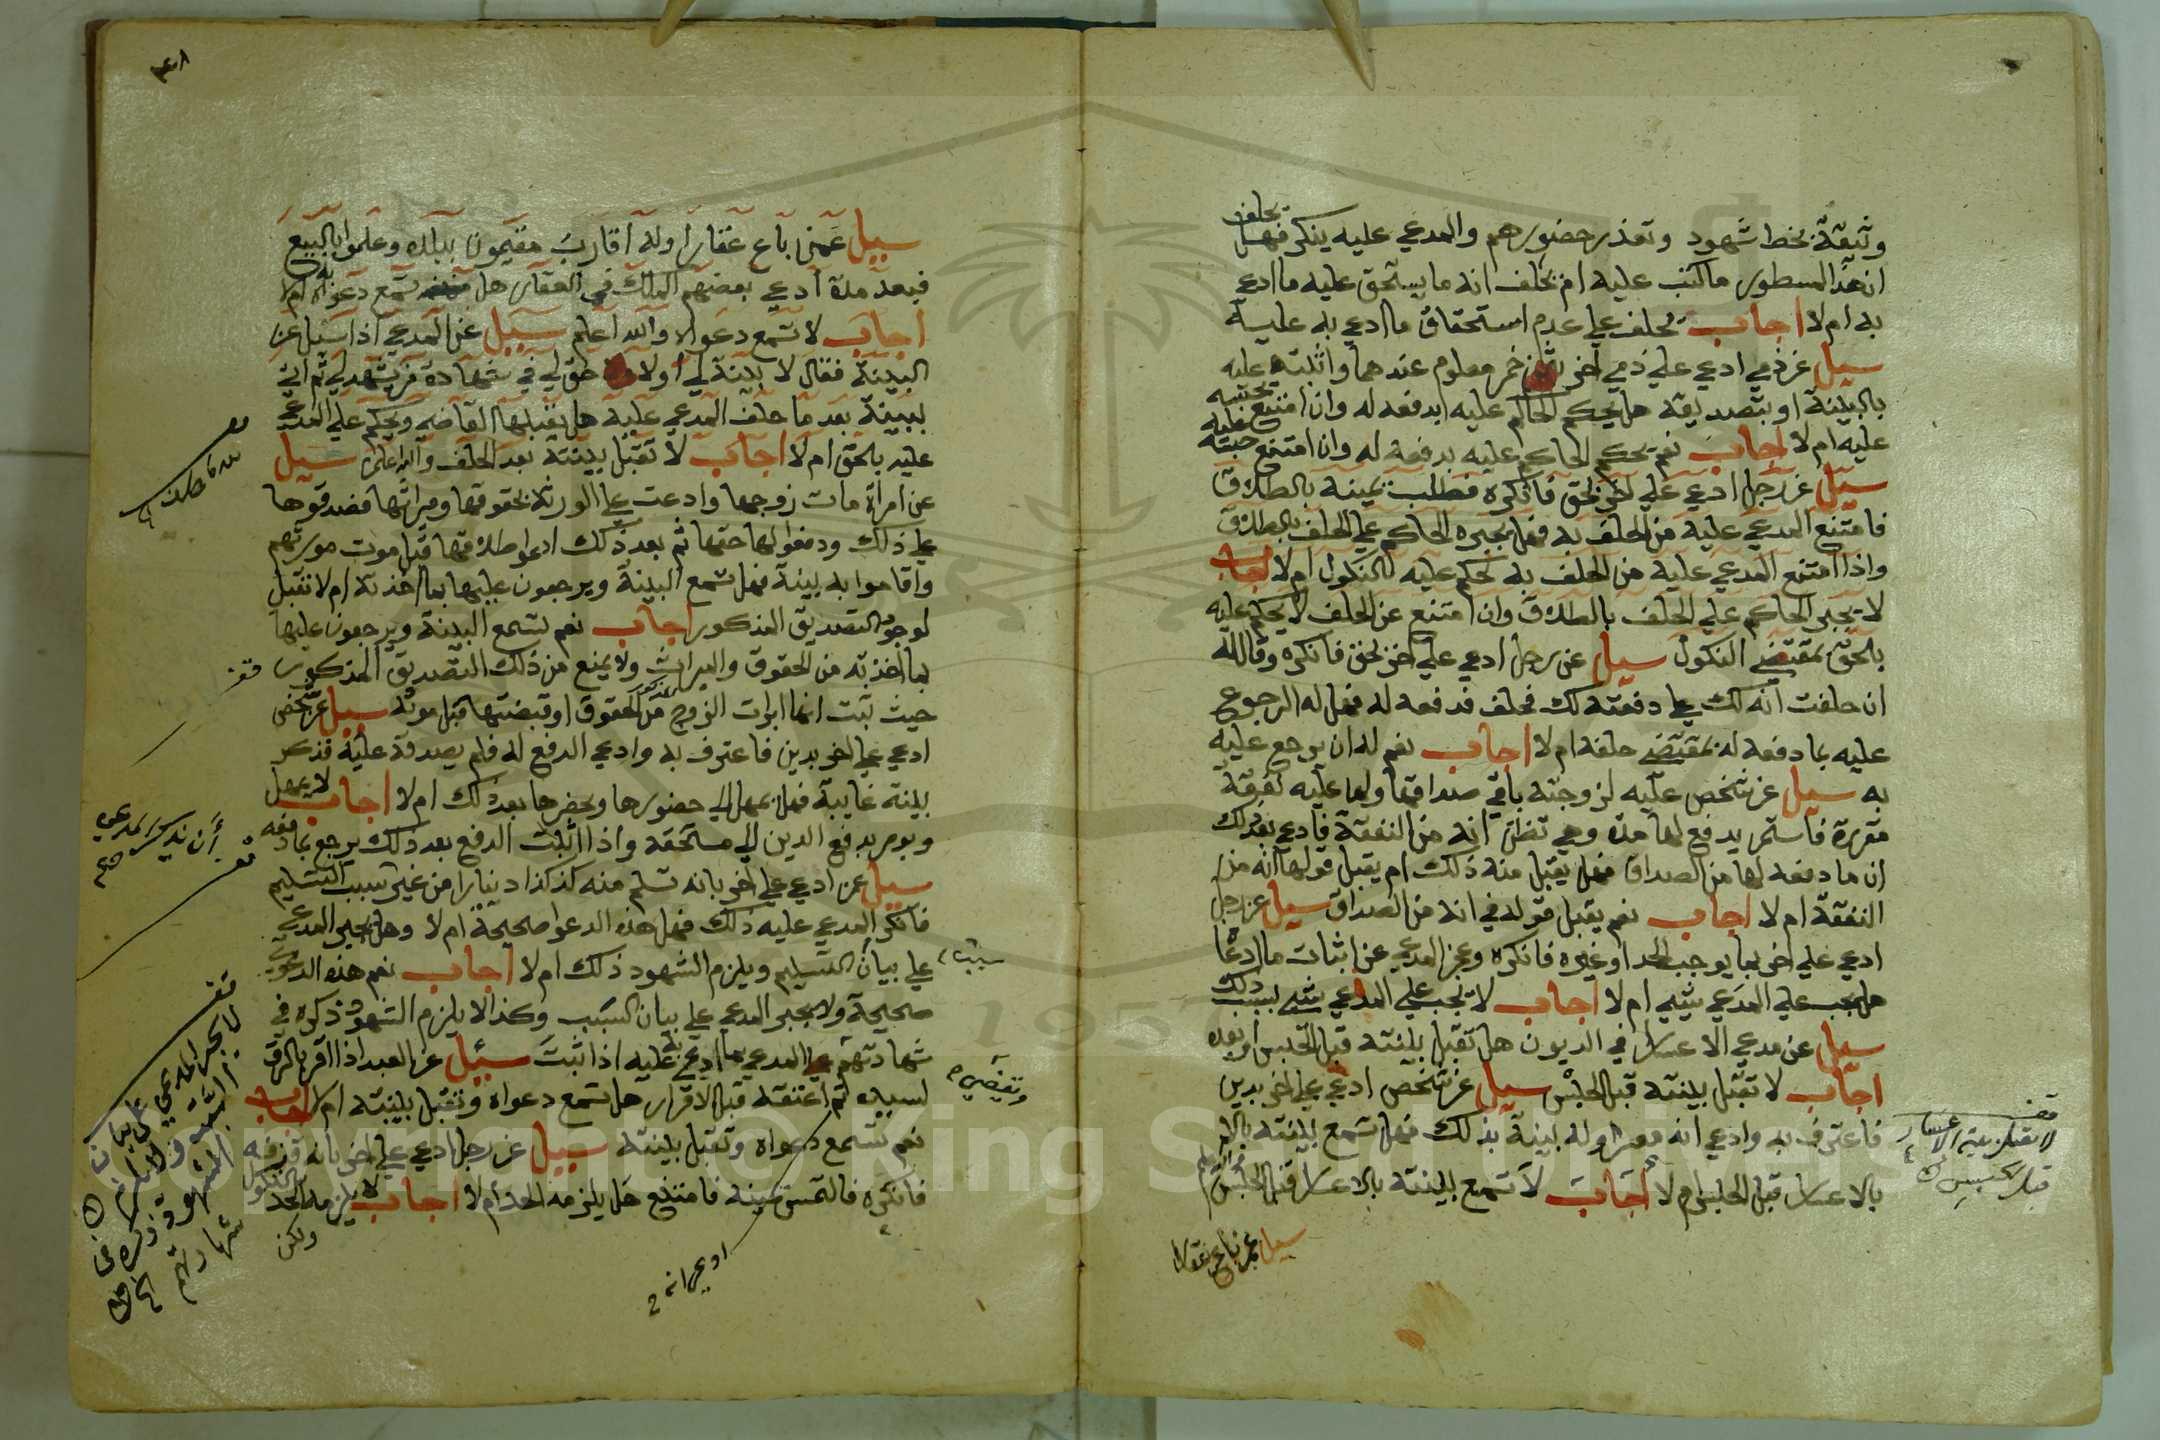 وثيقة بخط شهود وتعذر حضورهم والمدعي عليه ينكر فهل يحلف
ان هذا المسطور ما كتب عليه ام يحلف انه ما يستحق عليه ما ادعي
به ام لا اجاب يحلف علي عدم استحقاق ما ادعي به عليه
سيل عن ذمي ادعي علي ذمي اخر بثمن خمر معلوم عندهما واثبته عليه
بالبينة او بتصديقه هل يحكم الحاكم عليه بدفعه له وان امتنع يحبسه
عليه ام لا اجاب نعم يحكم الحاكم عليه بدفعه له وان امتنع حبسه
سيل عن رجل ادعي علي اخر بحق فانكره فطلب يمينه بالطلاق
فامتنع المدعي عليه من الحلف به فهل يجبره الحاكم علي الحلف بالطلاق
واذا امتنع المدعي عليه من الحلف به يحكم عليه بالنكول ام لا اجاب
لا يجبر الحاكم علي الحلف بالطلاق وان امتنع عن الحلف لا يحكم عليه
بالحق بمقتضي النكول سيل عن رجل ادعي علي اخر بحق فانكره وقال له
ان حلفت انه لك علي دفعته لك فحلف فدفعه له فهل له الرجوع
عليه بما دفعه له بمقتضي حلفه ام لا اجاب نعم له ان يرجع عليه
به سيل عن شخص عليه لزوجته باقي صداقها ولها عليه نفقة
مقررة فاستمر يدفع لها مدة وهي تظن انه من النفقة فادعي بعد ذلك
ان ما دفعه لها من الصداق فهل يقبل منه ذلك ام يقبل قولها انه من
النفقة ام لا اجاب نعم يقبل قوله في انه من الصداق سيل عن رجل
ادعي علي اخر بما يوجب الحد او غيره فانكره وعجز المدعي عن اثبات ما ادعا
هل يجب علي المدعي شي ام لا اجاب لا يجب علي المدعي شي بسبب ذلك
سيل عن مدعي الاعسار في الديون هل تقبل بينته قبل الحبس او بعده
اجاب لا تقبل بينته قبل الحبس سيل عن شخص ادعي علي اخر بدين
فاعترف به وادعي انه معسر وله بينة بذلك فهل تسمع بينته
بالاعسار قبل الحبس ام لا اجاب لا تسمع البينة بالاعسار قبل الحبس
سيل عمن باع عقارا
لا تقبل بينة الاعسار
قبل الحبس
سيل عمن باع عقارا وله اقارب مقيمون ببلده وعلموا بالبيع
فبعد مدة ادعي بعضهم الملك في العقار هل تسمع دعواه به ام لا
اجاب لا تسمع دعواه والله اعلم سيل عن المدعي اذا سيل عن
البينة فقال لا بينة لي اولا حق لي في شهادة من يشهد لي ثم اتي
ببينة بعد ما حلف المدعي عليه هل يقبلها القاضي ويحكم علي المدعي
عليه بالحق ام لا اجاب لا تقبل بينته بعد الحلف والله اعلم سيل
عن امراة مات زوجها وادعت علي الورثة بحقوقها وميراثها فصدقوها
علي ذلك ودفعوا لها حقها ثم بعد ذلك ادعوا طلاقها قبل موت مورثهم
واقاموا به بينة فهل تسمع البينة ويرجعون عليها بما اخذته ام لا تقبل
لوجود التصديق المذكور اجاب نعم تسمع البينة ويرجعون عليها
بما اخذته من الحقوق والميراث ولا يمنع من ذلك التصديق المذكور
حيث ثبت انها ابرات الزوج من الحقوق او قبضتها قبل موته سيل عن شخص
ادعي علي اخر بدين فاعترف به وادعي الدفع له فلم يصدقه عليه فذكر
بينة غايبة فهل يمهل الي حضورها ويحضرها بعد ذلك ام لا اجاب لا يمهل
ويومر بدفع الدين الي مستحقه واذا اثبت الدفع بعد ذلك يرجع بما دفعه
سيل عن ادعي علي اخر بانه تسلم منه كذا كذا دينارا من غير سبب التسليم
فانكر المدعي عليه ذلك فهل هذه الدعوا صحيحة ام لا وهل يجبر المدعي
علي بيان التسليم ويلزم الشهود ذلك ام لا اجاب نعم هذه الدعوي
صحيحة ولا يجبر المدعي علي بيان السبب وكذا لا يلزم الشهود ذكره في
شهادتهم علي المدعي بما ادعي به عليه اذا ثبت سيل عن العبد اذا اقر بالرق
لسيده ثم اعتقه قبل الاقرار هل تسمع دعواه وتقبل بينته ام لا اجاب
نعم تسمع دعواه وتقبل بينته سيل عن رجل ادعي علي اخر بانه قذفه
فانكره فالتمس يمينه فامتنع هل يلزمه الحد ام لا اجاب لا يلزمه الحد بالنكول
ولكن
سبب